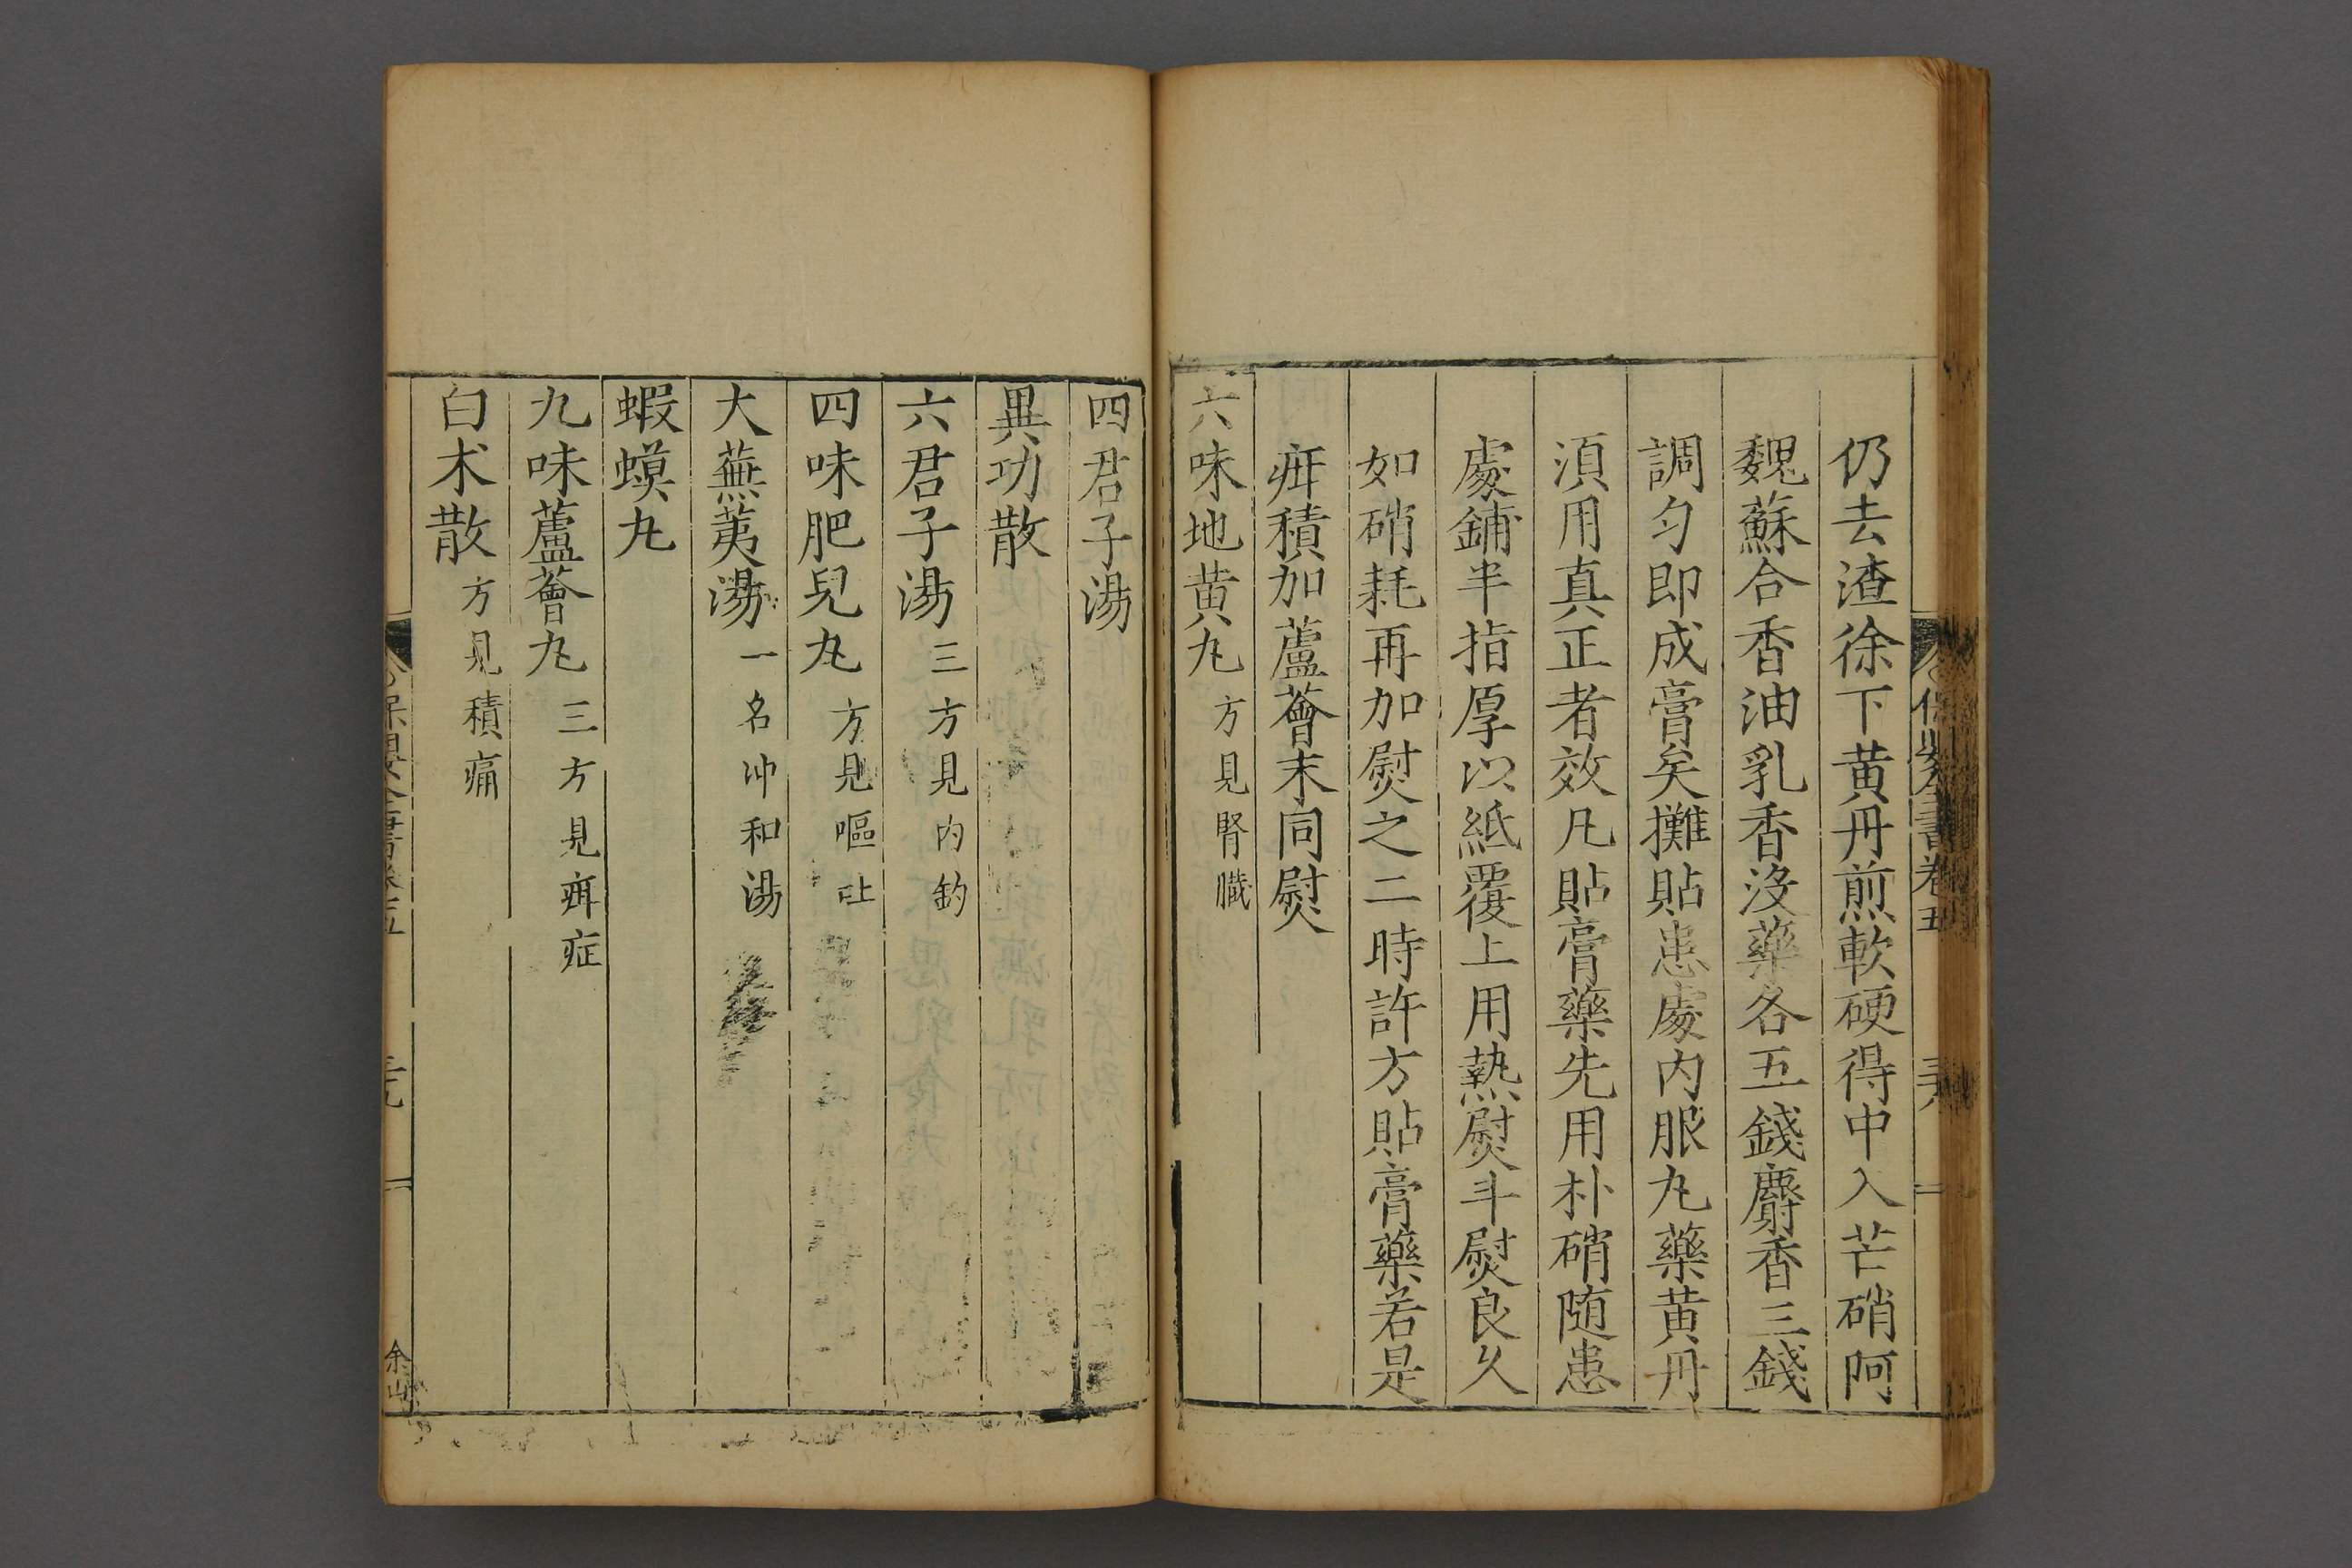 仍去渣徐下黄丹煎軟硬得中入芒硝阿
魏蘇合香油乳香没藥各五錢麝香三錢
調匀即成膏矣攤貼患處内服丸藥黄丹
須用真正者效凡貼膏藥先用朴硝随患
處鋪半指厚以紙覆上用熱熨斗熨良久
如硝耗再加熨之二時許方貼膏藥若是
疳積加蘆薈末同熨
六味地黄丸方見腎臟
四君子湯
異功散
六君子湯三方見内釣
四味肥兒丸方見嘔吐
大蕪荑湯一名冲和湯
蝦蟆丸
九味蘆薈丸三方見疳症
白术散方見積痛
余山